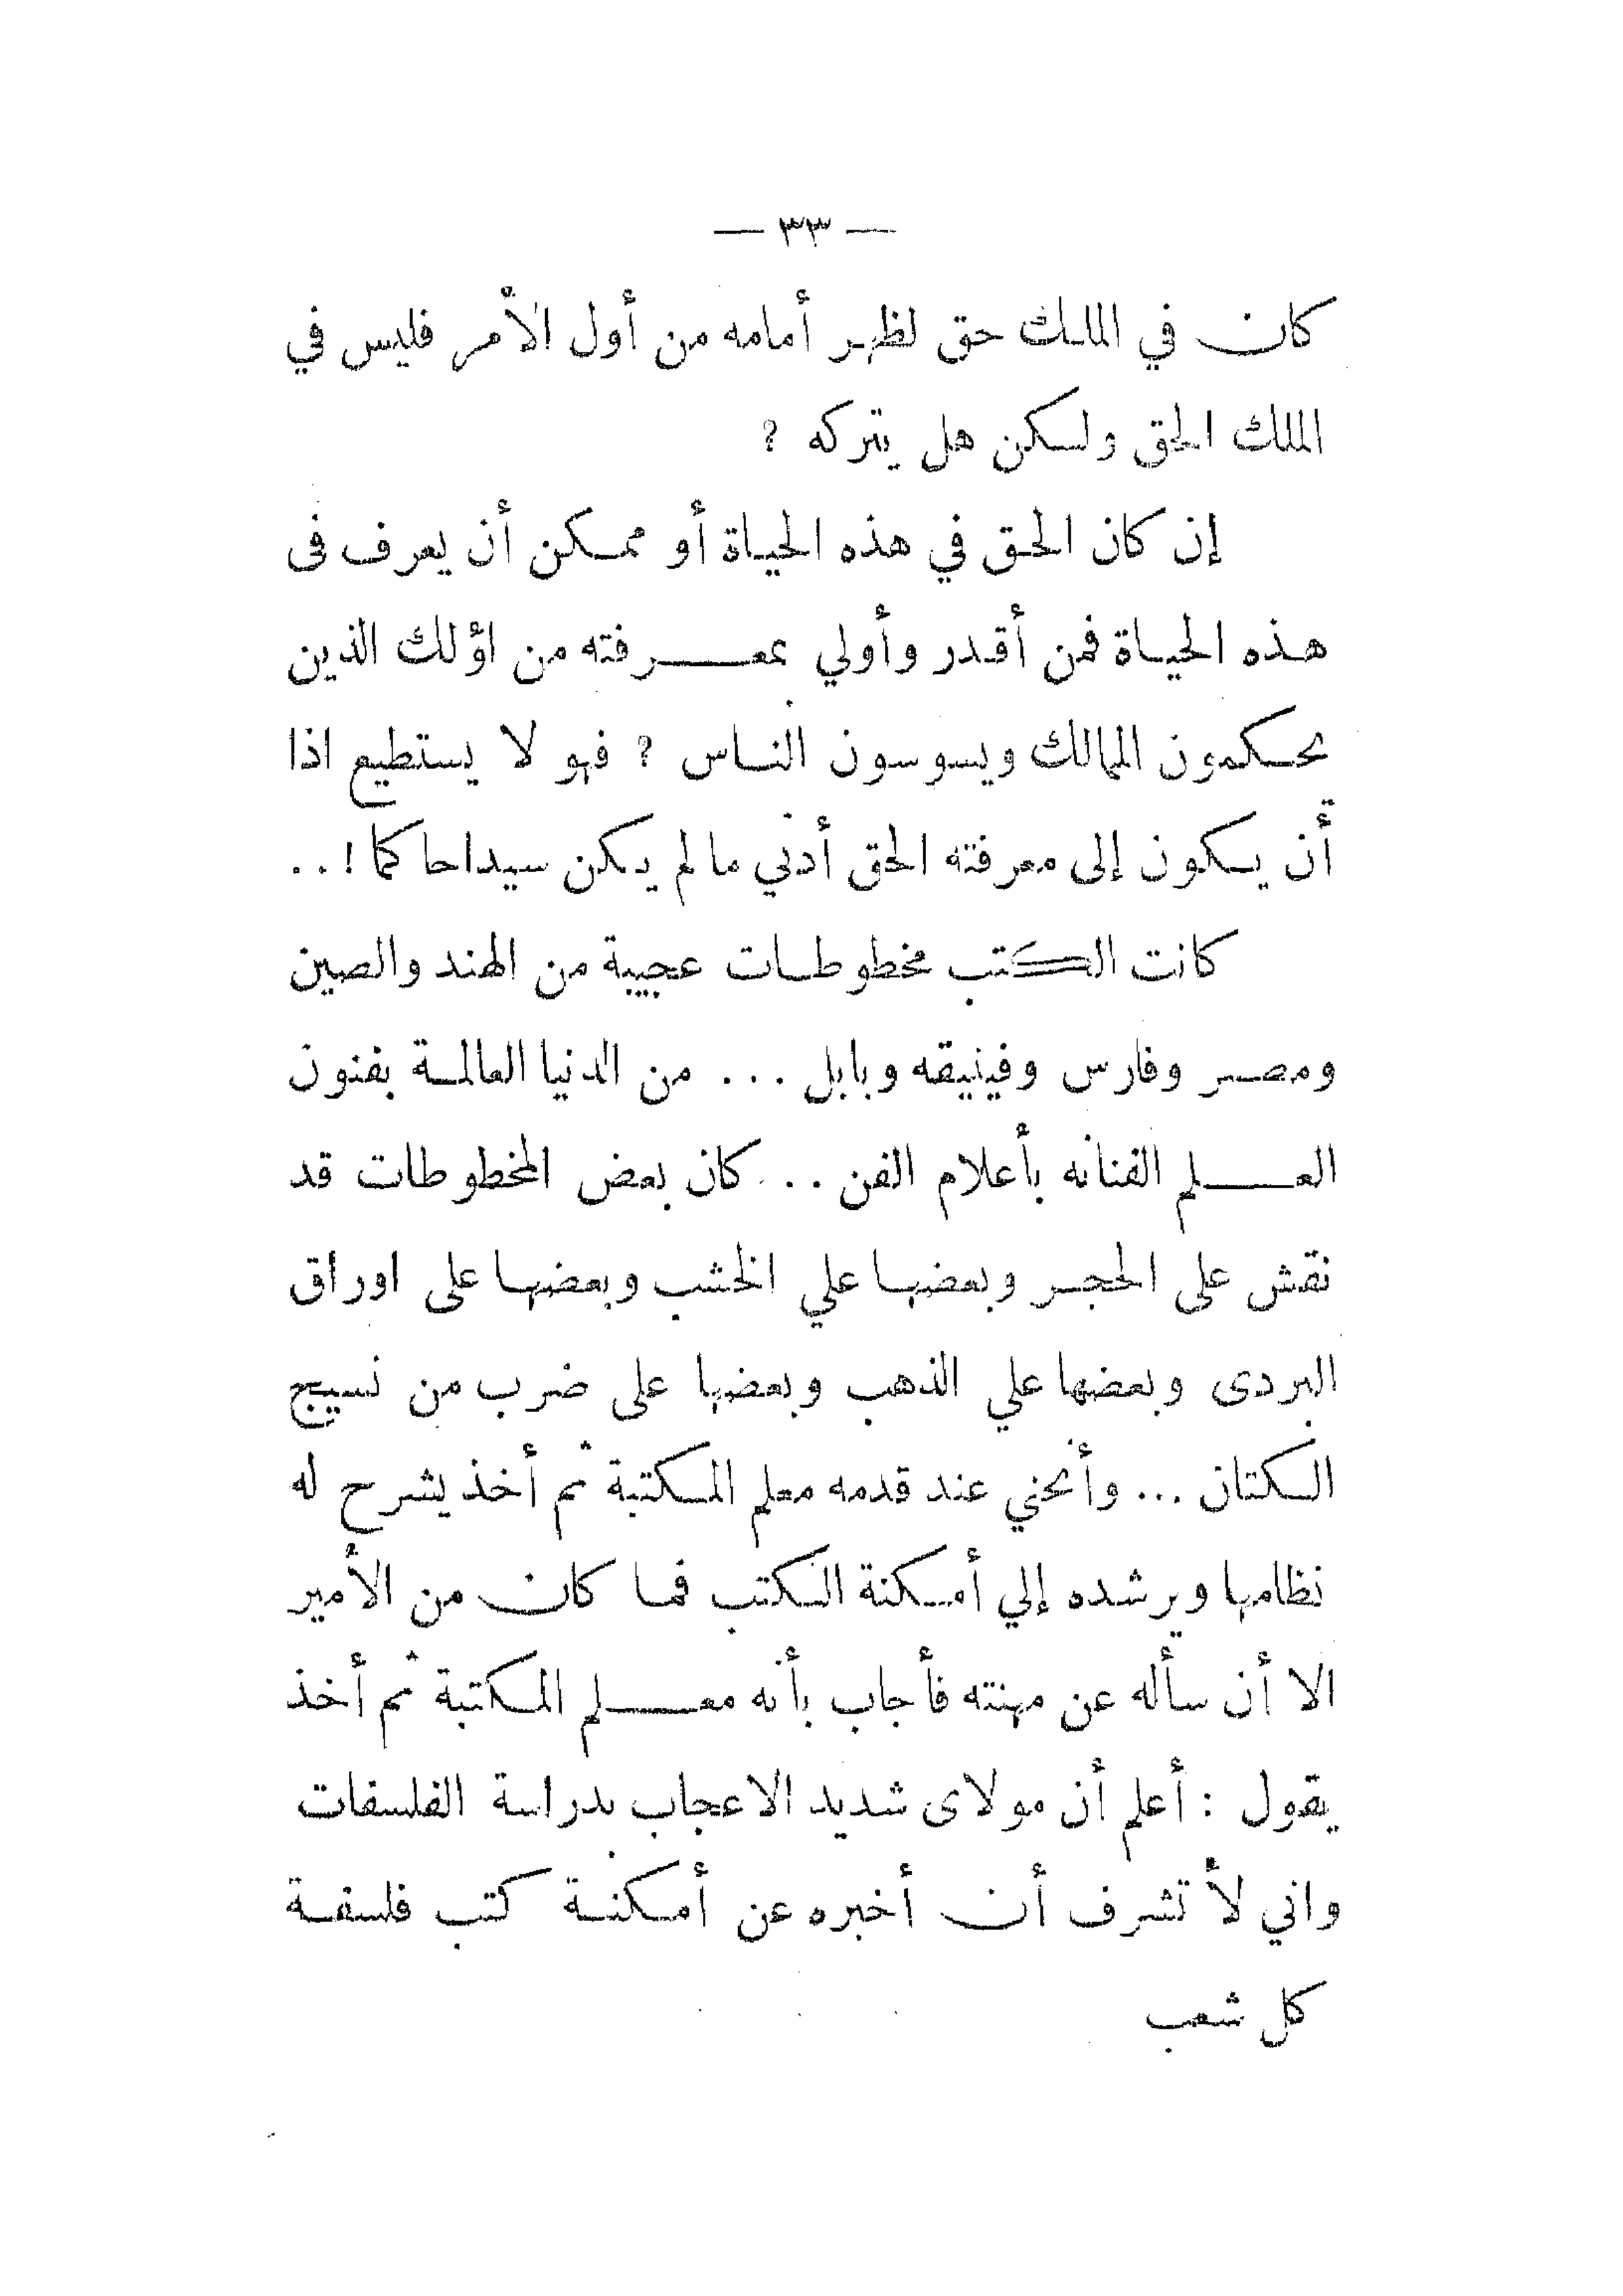 — ٣٣ —
كان في الملك حق لظهر أمامه من أول الأمر فليس في
الملك الحق ولكن هل يتركه ؟
إن كان الحق في هذه الحياة أو ممكن أن يعرف فى
هذه الحياة فمن أقدر وأولي بمعرفته من اؤلئك الذين
يحكمون الممالك ويسوسون الناس ؟ فهو لا يستطيع اذا
أن يكون إلى معرفته الحق أدني ما لم يكن سيدا حاكما ! . .
كانت الكتب مخطوطات عجيبة من الهند والصين
ومصر وفارس وفينيقه وبابل ... من الدنيا العالمة بفنون
العلم الفنانه بأعلام الفن . . . كان بعض المخطوطات قد
نقش على الحجر وبعضها علي الخشب وبعضها على اوراق
البردى وبعضها علي الذهب وبعضها على ضرب من نسيج
الكتان ... وأنحني عند قدمه معلم المكتبة ثم أخذ يشرح له
نظامها ويرشده إلي أمكنة الكتب فما كان من الأمير
الا أن سأله عن مهنته فأجاب بأنه معلم المكتبة ثم أخذ
يقول : أعلم أن مولاى شديد الاعجاب بدراسة الفلسفات
واني لأتشرف أن أخبره عن أمكنة كتب فلسفة
كل شعب